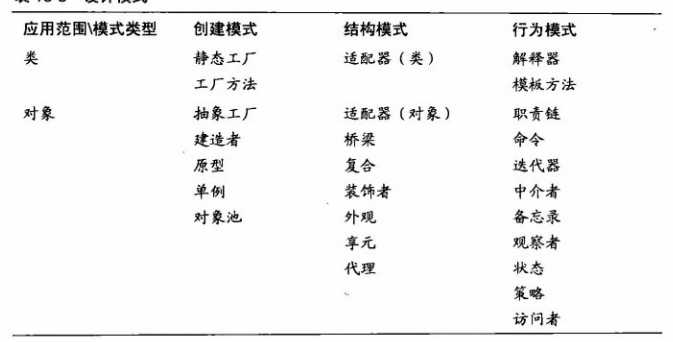 应用范围\模式类型 创建模式 结构模式 行为模式
类 静态工厂 适配器（类） 解释器
工厂方法 模板方法
对象 抽象工厂 适配器（对象） 职责链
建造者 桥梁 命令
原型 复合 迭代器
单例 装饰者 中介者
对象池 外观 备忘录
享元 观察者
代理 状态
策略
访问者